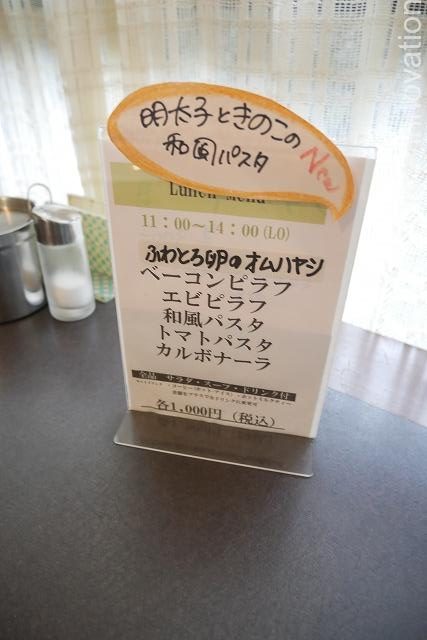 明太子ときのこの
和風パスタ
New
Lunch Menu
11：00～14：00（LO）
ふわとろ卵のオムハヤシ
ベーコンピラフ
エビピラフ
和風パスタ
トマトパスタ
カルボナーラ
全品 サラダ・スープ・ドリンク付
各1,000円（税込）
ovation